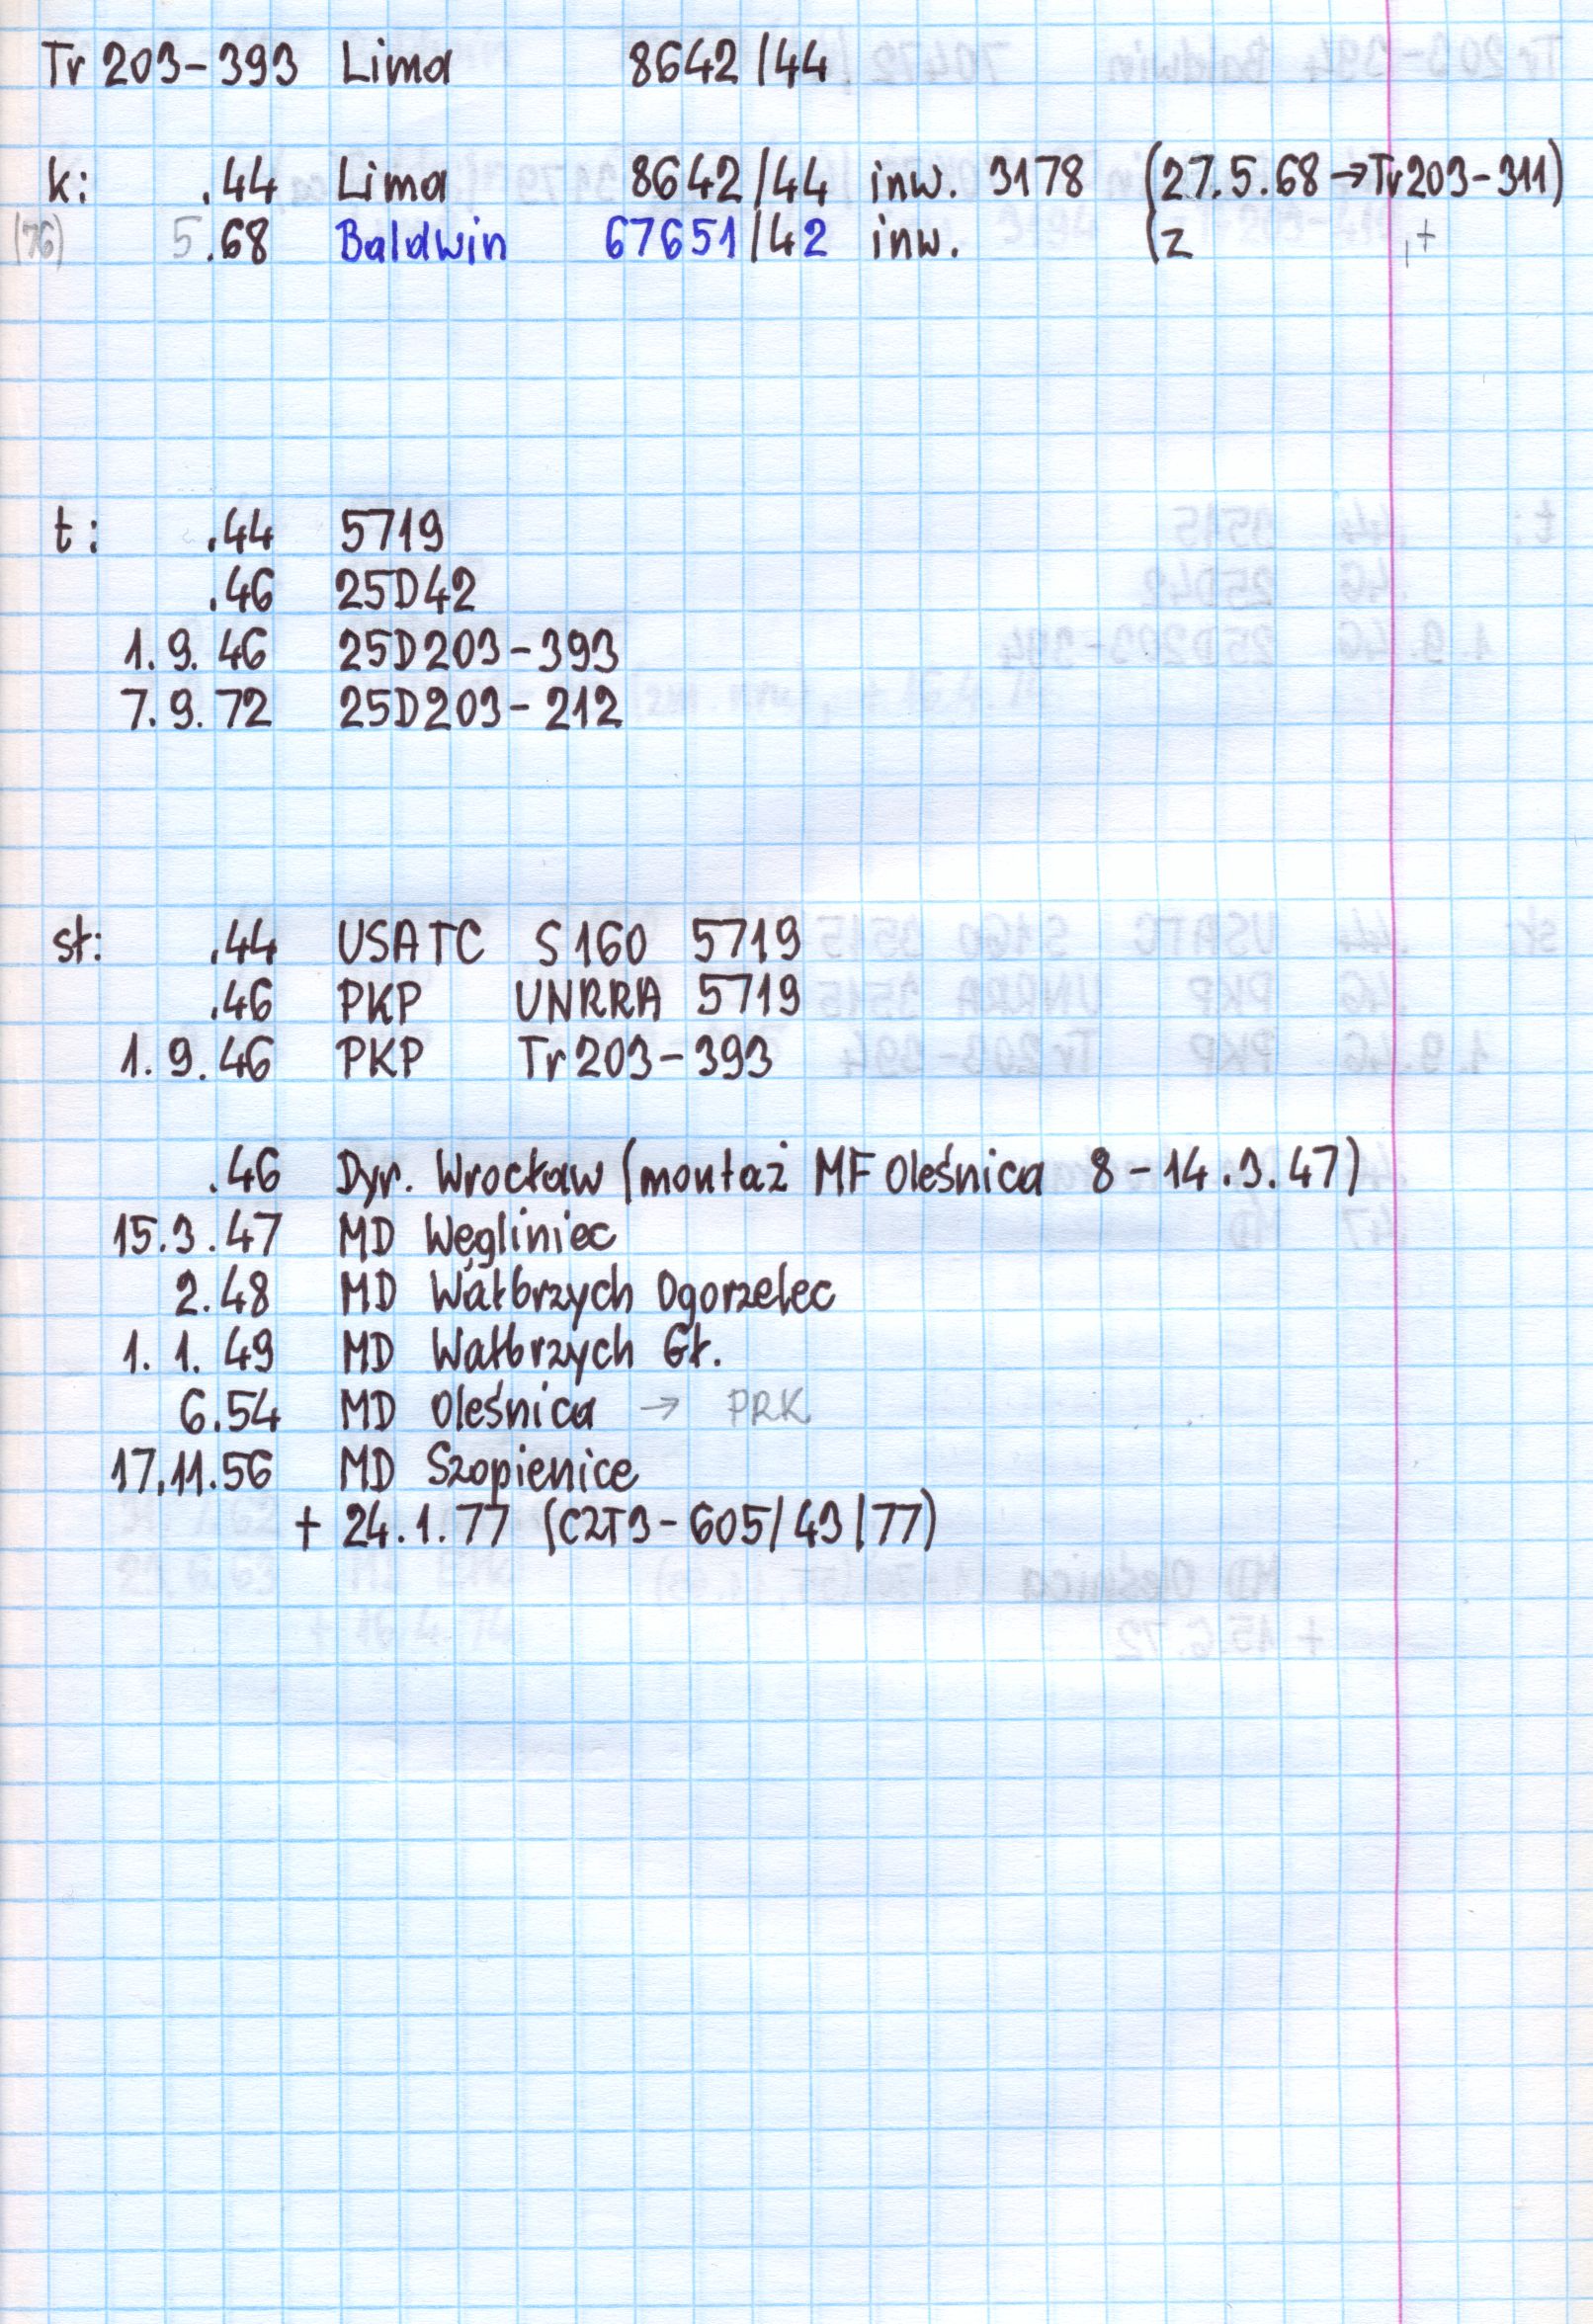 Tr 203-393 Lima 8642/44
k: .44 Lima 8642/44 inw. 3178 (27.5.68→Tr203-311)
(76) 5.68 Baldwin 67651/42 inw. (z ,+
t: .44 5719
.46 25D42
1.9.46 25D203-393
7.9.72 25D203-212
sł: .44 USATC S160 5719
.46 PKP UNRRA 5719
1.9.46 PKP Tr203-393
.46 Dyr. Wrocław (montaż MF Oleśnica 8-14.3.47)
15.3.47 MD Węgliniec
2.48 MD Wałbrzych Ogorzelec
1.1.49 MD Wałbrzych Gł.
6.54 MD Oleśnica → PRK
17.11.56 MD Szopienice
+ 24.1.77 (C2T3-605/43/77)